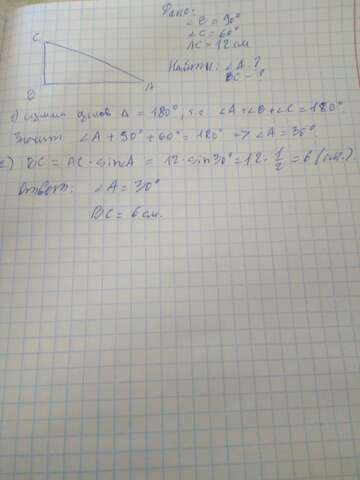 Дано:
∠B = 90°
∠C = 60°
AC = 12 см
Найти: ∠A - ?
BC - ?
C
B
A
1) сумма углов Δ = 180°, т.е. ∠A+∠B+∠C = 180°
Значит ∠A + 90° + 60° = 180° => ∠A = 30°
2) BC = AC · sin A = 12 · sin30° = 12 · 1/2 = 6 (см.)
Ответ: ∠A = 30°
BC = 6 см.